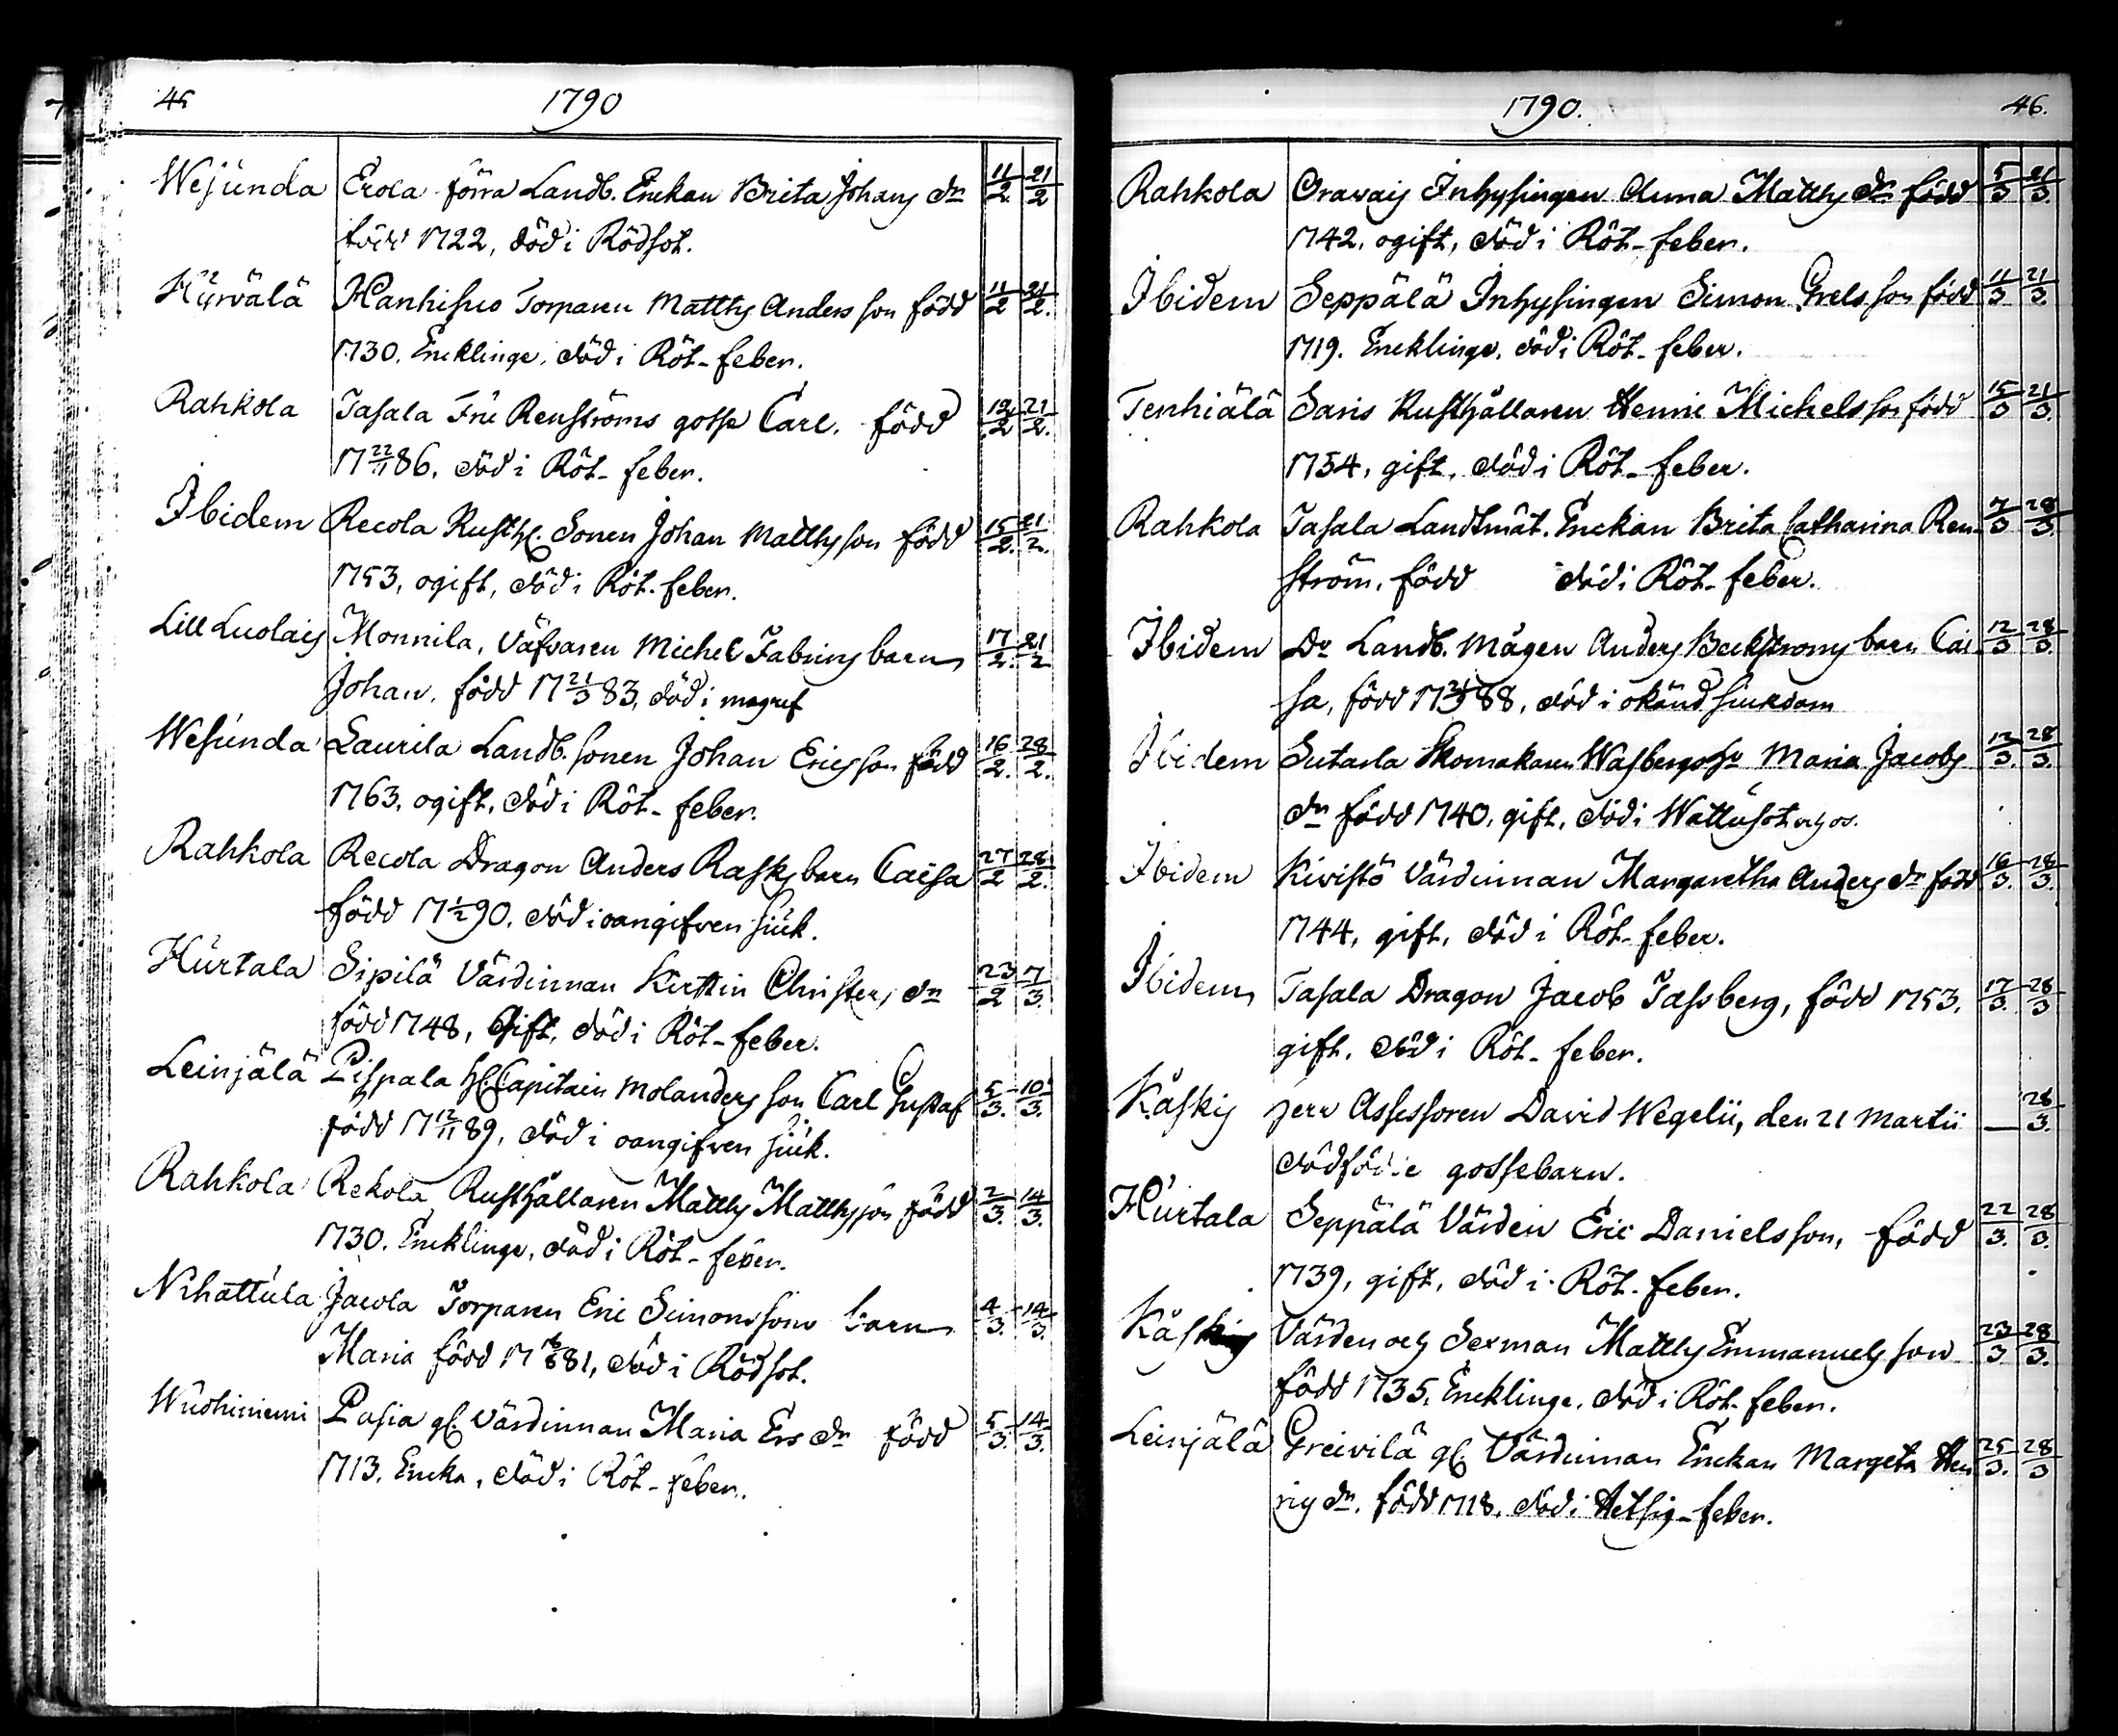 45 1790
Wesunda Erola förra Landb. Enckan Brita Johans dr 11/2 21/2
född 1722, död i Rödsot.
Hyrvälä Hanhisuo Torparen Matths Anders son född 11/2 21/2.
1730. Encklinge, död i Röt-feber.
Rahkola Tasala Fru Renströms gosse Carl. född 12/2 21/2.
17 22/11 86, död i Röt-feber.
Ibidem Recola Rusth. Sonen Johan Matths son född 15/2. 21/2.
1753, ogift, död i Röt-feber.
Lill Luolais Monnila, Väfvaren Michel Fabrins barn 17/2. 21/2
Johan, född 17 21/3 83, död i magref
Wesunda Laurila Landb. sonen Johan Erics son född 16/2. 28/2.
1763, ogift, död i Röt-feber.
Rahkola Recola Dragon Anders Rasks barn Caisa 27/2 28/2.
född 17 1/2 90. död i oangifven siuk.
Hurtala Sipilä Värdinnan Kirstin Christers dr 23/2 7/3.
född 1748, Gift, död i Röt-feber.
Leinjälä Pispala Capitain Molanders son Carl Gustaf 5/3. 10/3.
född 17 12/11 89, död i oangifven siuk.
Rahkola Rekola Rusthållaren Matths Matths son född 2/3. 14/3.
1730. Encklinge, död i Röt-feber.
Nihattula Jacola Torparen Eric Simonssons barn 4/3. 14/3.
Maria född 17 81, död i Rödsot.
Wuohiniemi Pasia gl. Värdinnan Maria Ers dr född 5/3. 14/3.
1713. Encka, död i Röt-feber.
1790. 46.
Rahkola Orawais Inhysingen Anna Matths dr född 5/3 21/3.
1742. ogift, död i Röt-feber.
Ibidem Seppälä Inhysingen Simon Grels son född 11/3 21/3.
1719. Encklinge, död i Röt-feber.
Tenhiälä Saris Rusthållaren Henric Michels son född 15/3 21/3.
1754, gift, död i Röt-feber.
Rahkola Tasala Landtmät. Enckan Brita Catharina Ren- 7/3 28/3.
ström, född död i Röt-feber.
Ibidem Do Landb. Mågen Anders Beckströms barn Cai- 12/3 28/3.
sa, född 17 88, död i okänd siukdom
Ibidem Sutarla Skomakaren Wasbergs Hu Maria Jacobs 12/3. 28/3.
dr född 1740, gift, död i Wattusot
Ibidem Kivistö Värdinnan Margaretha Anders dr född 16/3. 28/3.
1744, gift, död i Röt-feber.
Ibidem Tasala Dragon Jacob Tassberg, född 1753. 17/3. 28/3
gift, död i Röt-feber.
Kåskis herr Assessoren David Wegelii, den 21 Martii — 28/3.
dödfödde gossebarn.
Hurtala Seppälä Värden Eric Danielsson, född 22/3. 28/3.
1739, gift, död i Röt-feber.
Kåskis Värden och Sexman Matths Emmanuels son 23/3 28/3.
född 1735, Encklinge, död i Röt-feber.
Leinjälä Greivilä gl. Värdinnan Enckan Margeta Hen 25/3. 28/3
rics dr. född 1718, död i Hetsig-feber.